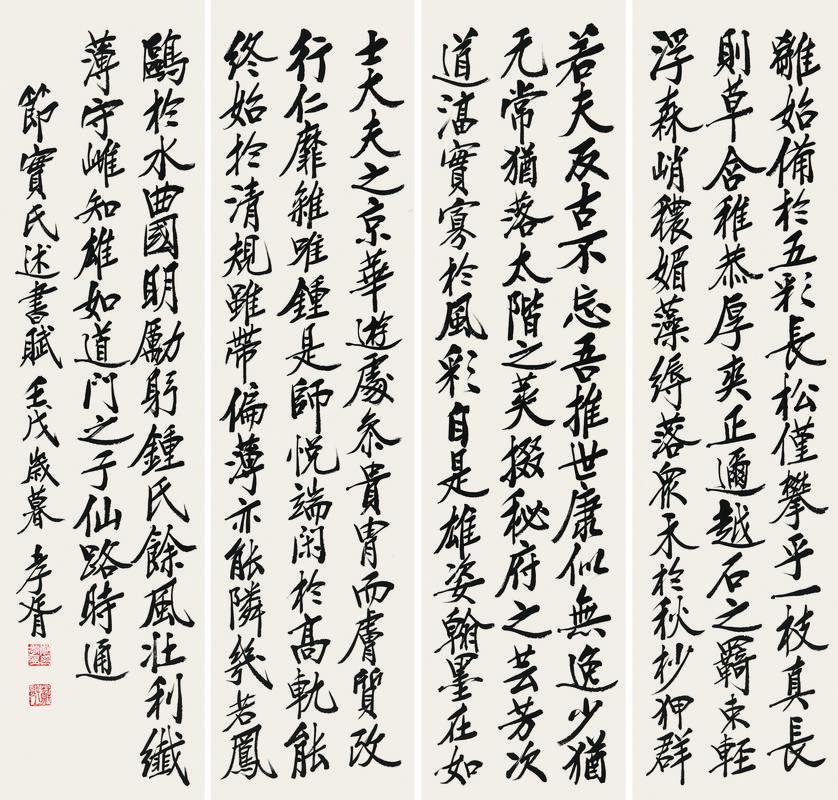 離始備於五彩長松僅攀乎一枝真長
則草含稚恭厚爽正邇越石之羇束輕
浮森峭穠媚藻縟落眾禾於秋杪狎群
若夫反古不忘吾推世康似無逸少猶
无常猶落太階之蓂掇秘府之芸芳次
道湻實寡於風彩自是雄姿翰墨在如
士大夫之京華遊處忝貴胄而膚質改
行仁靡雜唯鍾是師悅端閑於高軌能
終始於清規雖帶偏薄亦能隣幾若鳳
鷗於水曲國明勵躬鍾氏餘風壯利纖
薄守雌知雄如道門之子仙路時通
節竇氏述書賦壬戌歲暮 孝胥